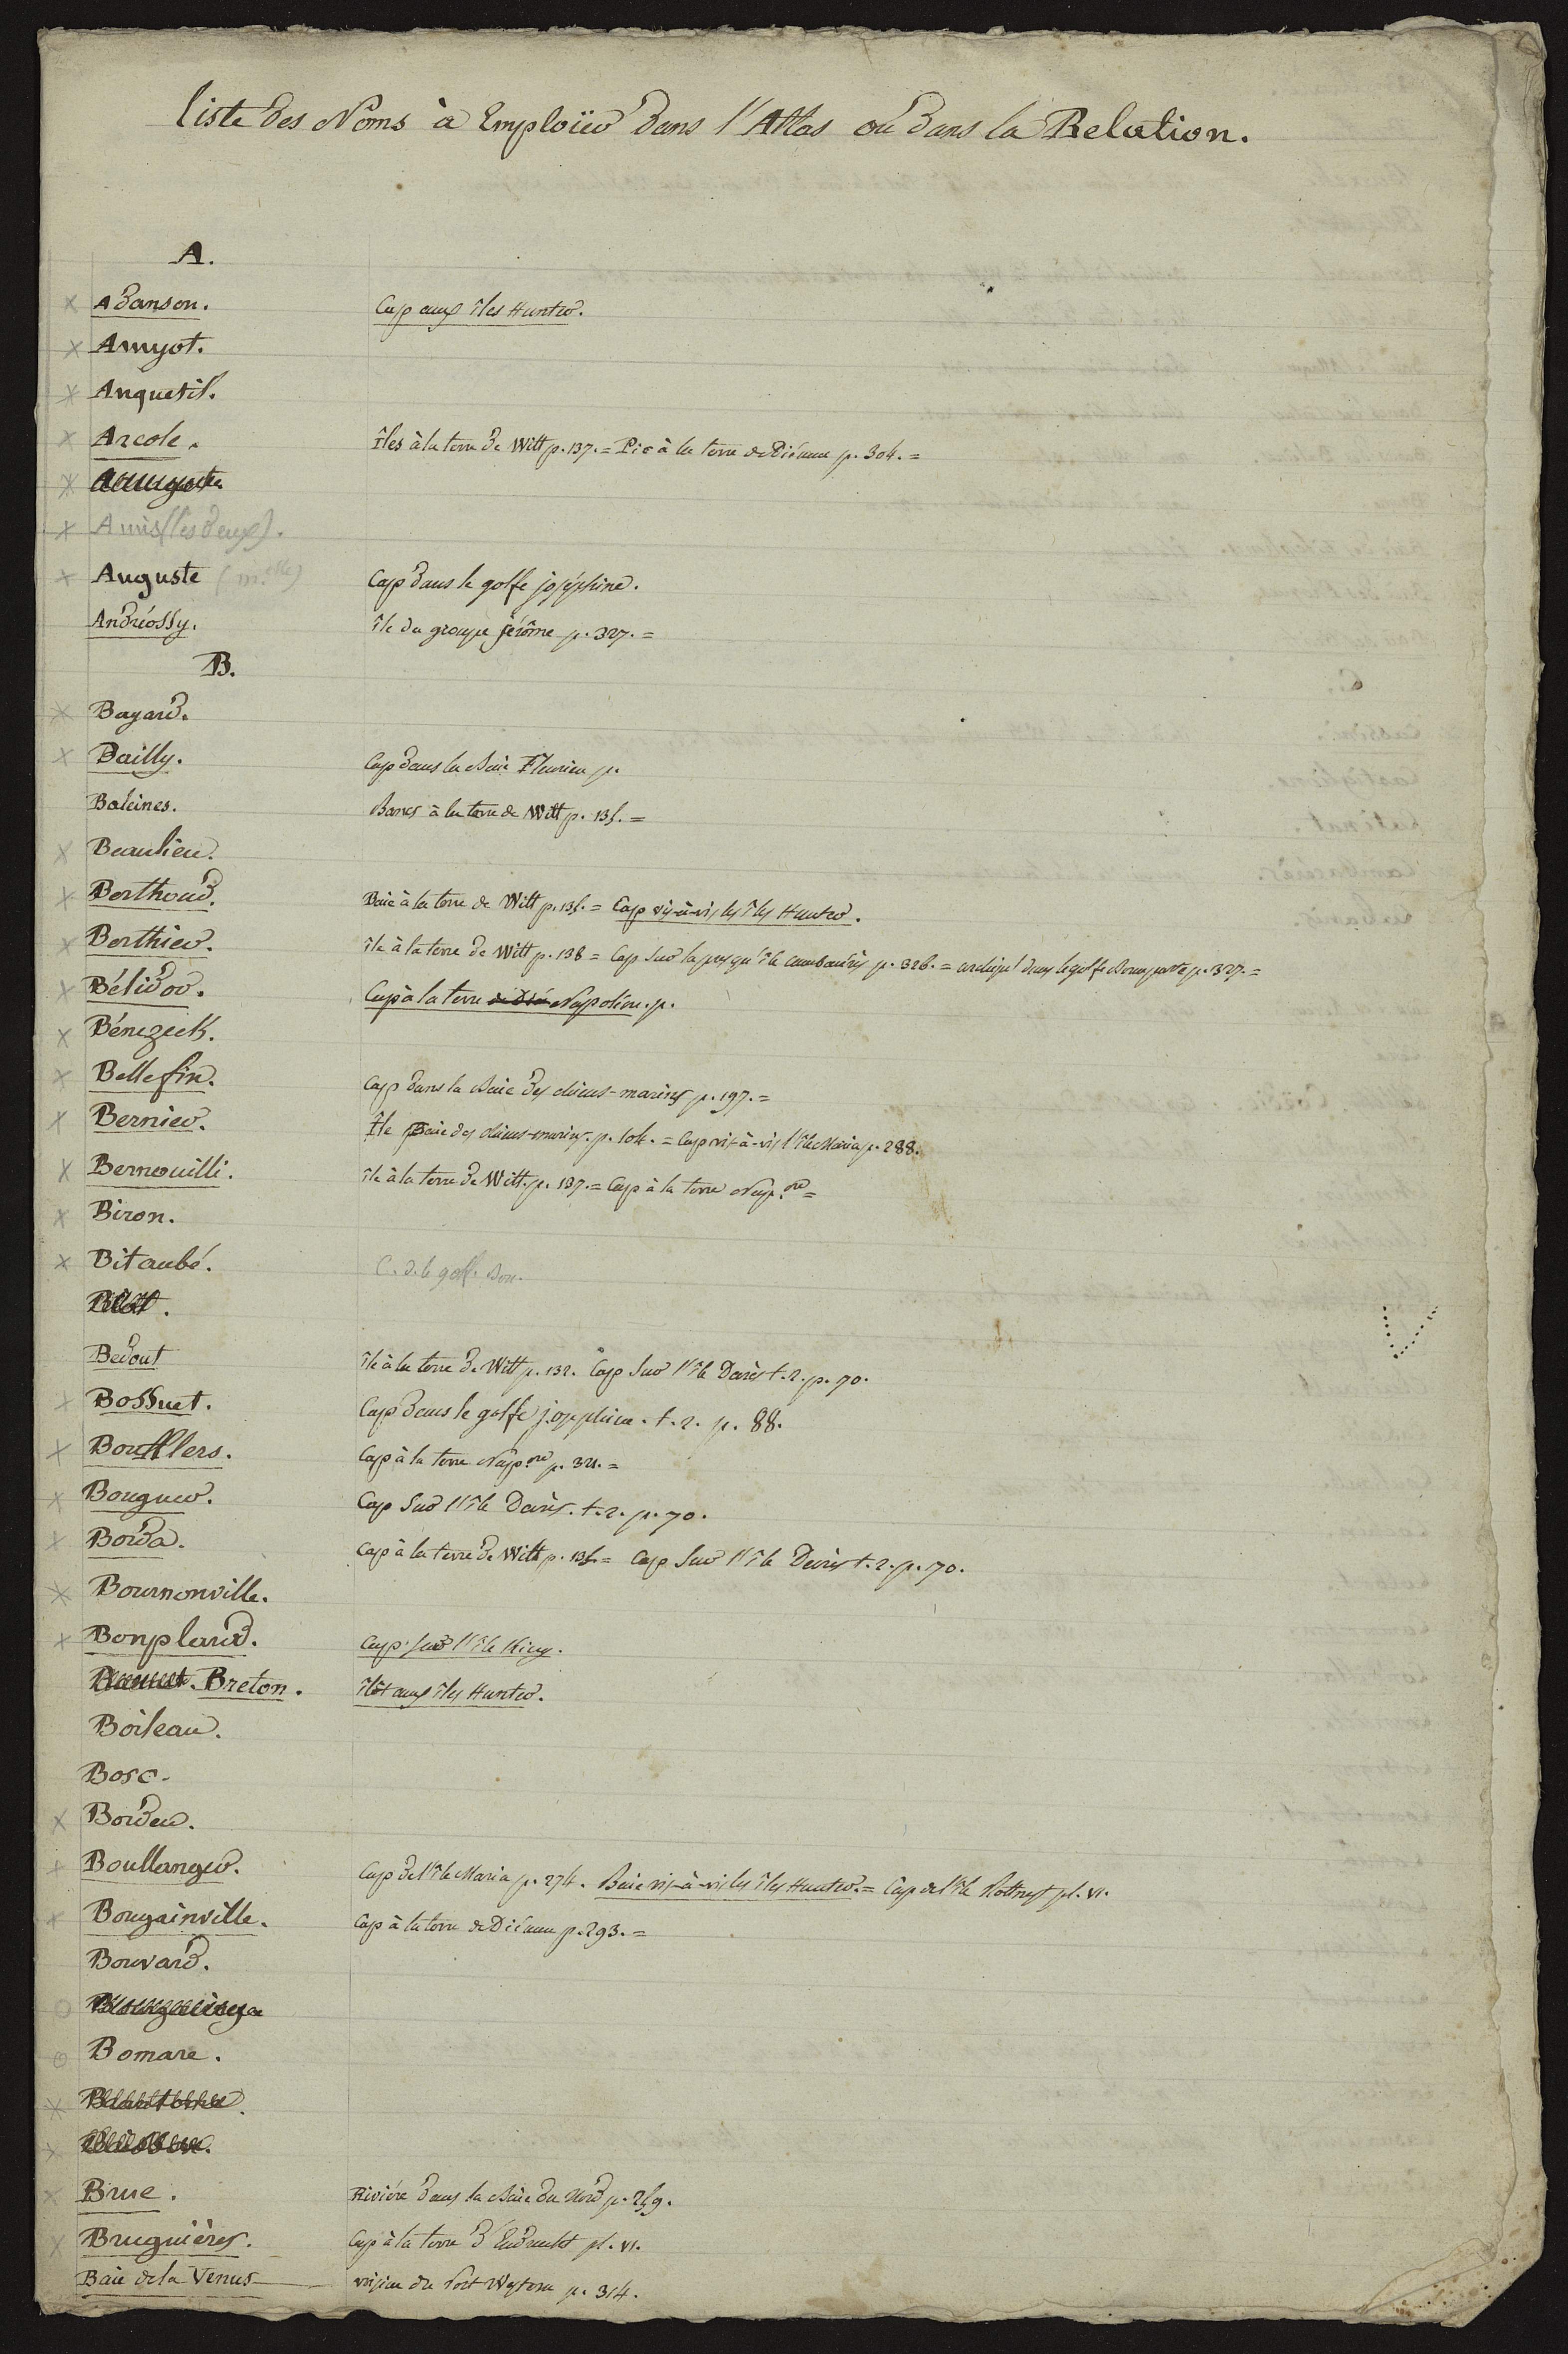 Liste des Noms à Emploïer dans l'Atlas ou dans la Relation.
A.
× Adanson. Cap aux îles Hunter.
× Amyot.
× Anquetil.
× Arcole. Îles à la terre de Witt p. 137. = Pic à la terre de Diémen p. 304. =
×
× Amis (les deux).
× Auguste (m.elle) Cap dans le golfe joséphine.
Andréossy. île du groupe jérôme p. 327. =
B.
× Bayard.
× Bailly. Cap dans la Baie Fleurieu p.
Baleines. Bancs à la terre de Witt p. 135. =
× Beaulieu.
× Berthoud. Baie à la terre de Witt p. 135. = Cap vis-à-vis les îles Hunter.
× Berthier. île à la terre de Witt p. 138 = Cap sur la presqu'île cambacérès p. 326. = archipel dans le golfe Bonaparte p. 327. =
× Bélidor. Cap à la terre Napoléon. p.
× Bénezech.
× Bellefin. Cap dans la Baie des chiens-marins p. 197. =
× Bernier. Île Baie des chiens-marins. p. 104. = Cap vis-à-vis l'île Maria p. 288.
× Bernouilli. île à la terre de Witt. p. 137. = Cap à la terre Nap.on =
× Biron.
× Bitaubé. C. d. le golf. Bon.
Bedout île à la terre de Witt p. 132. Cap sur l'île Decrès t. 2. p. 70.
× Bossuet. Cap dans le golfe josephine. t. 2. p. 88.
× Boufflers. Cap à la terre Nap.on p. 321. =
× Bouguer. Cap sur l'île Decrès. t. 2. p. 70.
× Borda. Cap à la terre de Witt p. 135. = Cap sur l'île Decrès t. 2. p. 70.
× Bournonville.
× Bonpland. Cap sur l'île King.
Breton. îlôt aux îles Hunter.
Boileau.
Bosc.
× Bordeu.
× Boullanger. Cap de l'île Maria p. 274. Baie vis-à-vis les îles Hunter. = Cap de l'île Rottnest pl. VI.
× Bougainville. Cap à la terre de Diémen p. 293. =
Bouvard.
O
O Bomare.
×
×
× Brue. Rivière dans la Baie du Nord p. 259.
× Bruguières. Cap à la terre d'Endracht pl. VI.
Baie de la Venus — voisine du Port Western p. 314.